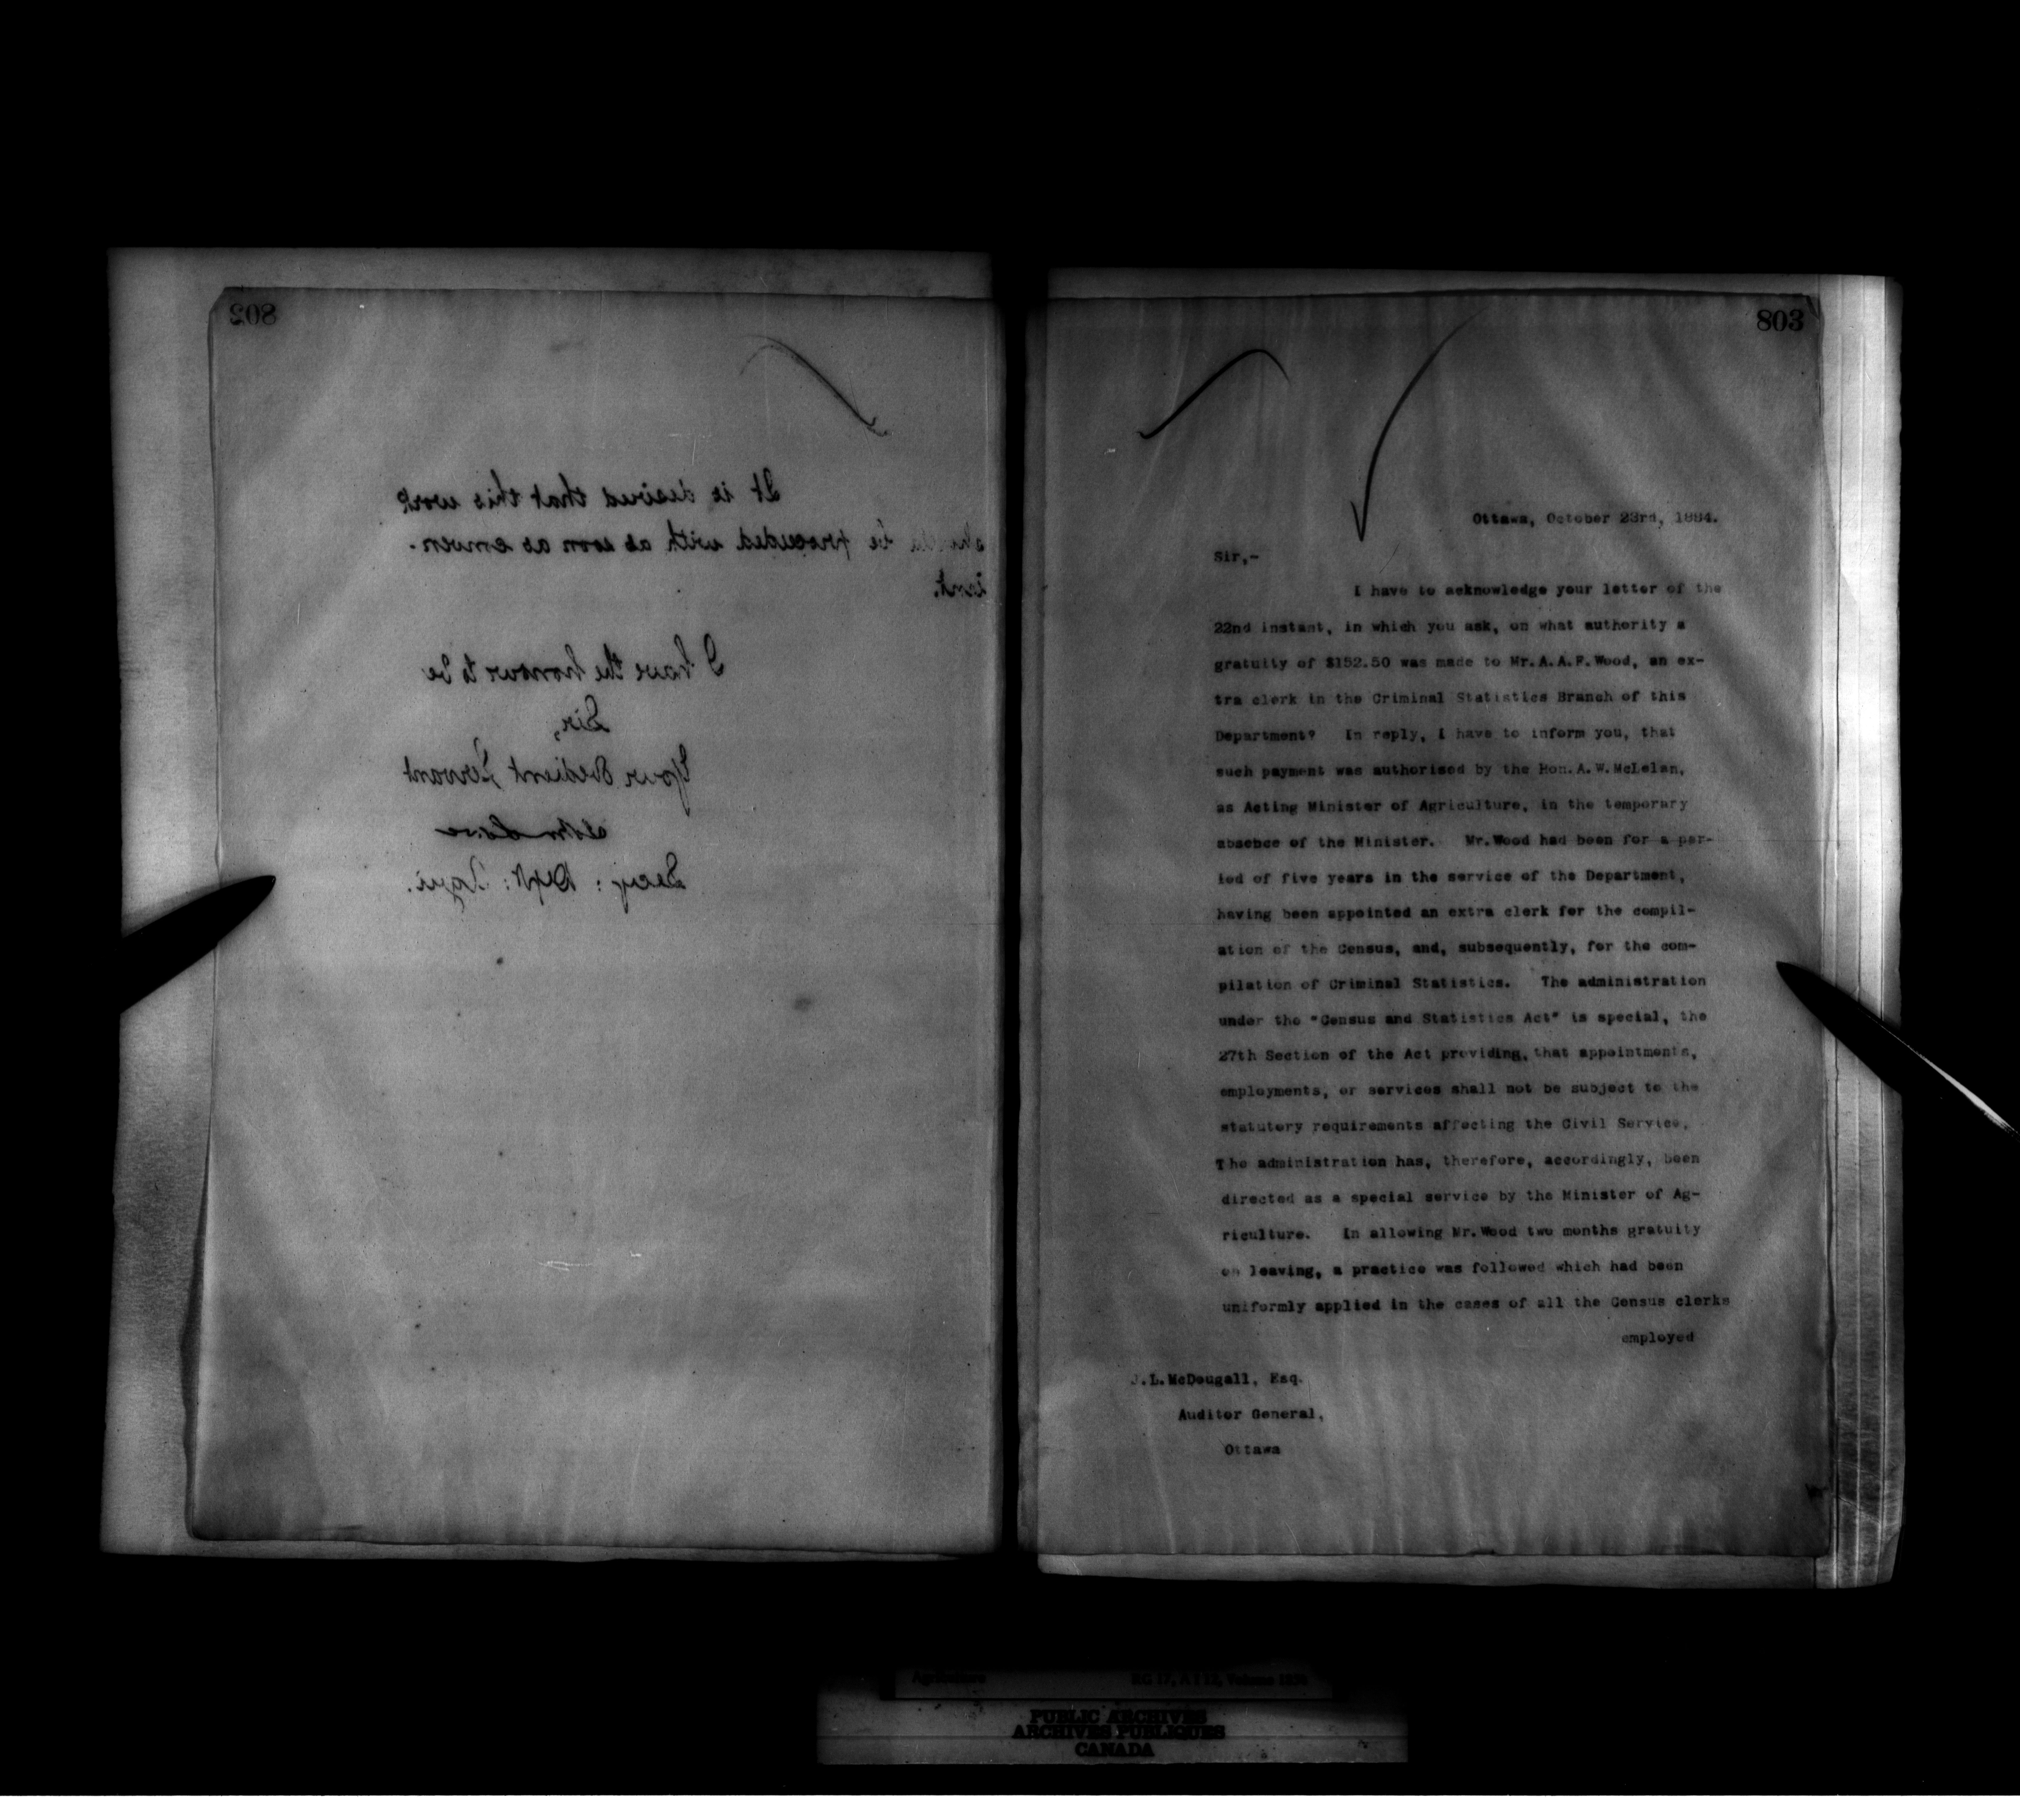 802
It is desired that this work
should be proceeded with as soon as conven-
ient.
I have the honour to be
Sir,
Your Obedient Servant
Secy: Dept: Agri.
803
Ottawa, October 23rd, 1884.
Sir,-
I have to acknowledge your letter of the
22nd instant, in which you ask, on what authority a
gratuity of $152.50 was made to Mr.A.A.F.Wood, an ex-
tra clerk in the Criminal Statistics Branch of this
Department? In reply, I have to inform you, that
such payment was authorised by the Hon.A.W.McLelan,
as Acting Minister of Agriculture, in the temporary
absence of the Minister. Mr.Wood had been for a per-
iod of five years in the service of the Department,
having been appointed an extra clerk for the compil-
ation of the Census, and, subsequently, for the com-
pilation of Criminal Statistics. The administration
under the "Census and Statistics Act" is special, the
27th Section of the Act providing, that appointments,
employments, or services shall not be subject to the
statutory requirements affecting the Civil Service.
The administration has, therefore, accordingly, been
directed as a special service by the Minister of Ag-
riculture. In allowing Mr.Wood two months gratuity
on leaving, a practice was followed which had been
uniformly applied in the cases of all the Census clerks
employed
J.L.McDougall, Esq.
Auditor General,
Ottawa
Agriculture RG 17, A I 12, Volume
PUBLIC ARCHIVES
ARCHIVES PUBLIQUES
CANADA